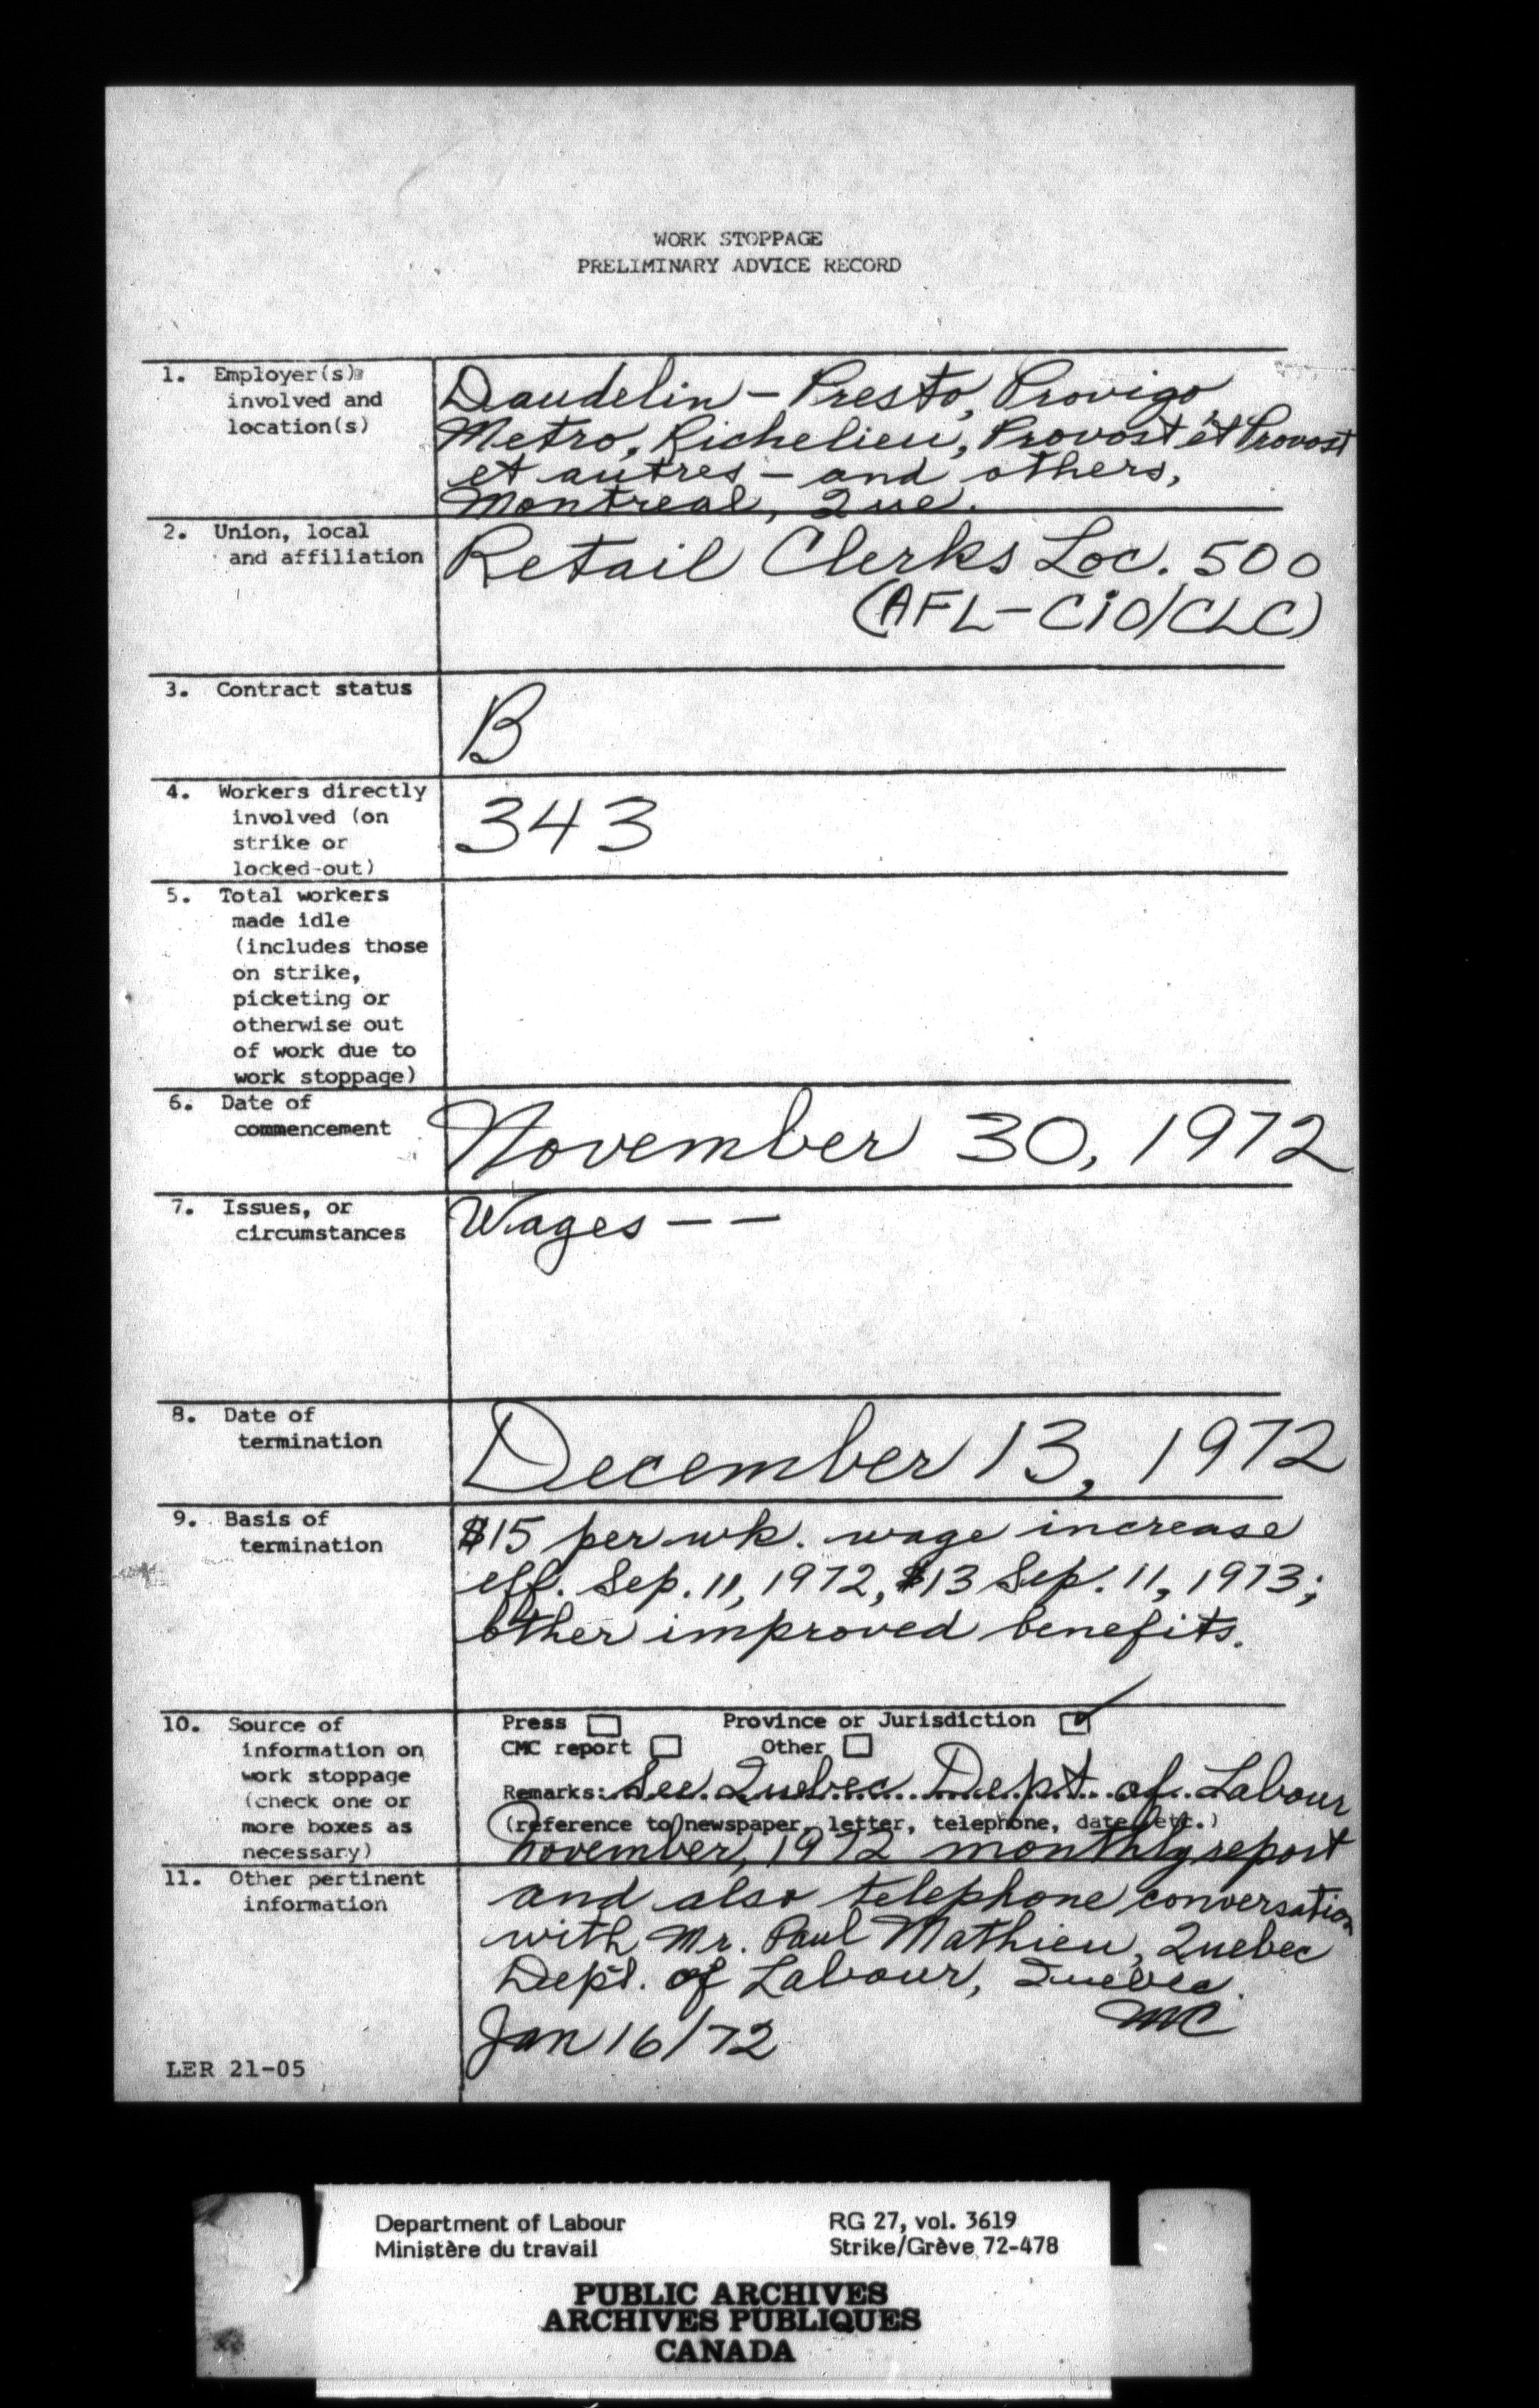 WORK STOPPAGE
PRELIMINARY ADVICE RECORD
1. Employer(s)
involved and
location(s)
Daudelin - Presto, Provigo
Metro, Richelieu, Provost et Provost
et autres - and others,
Montreal, Que.
2. Union, local
and affiliation
Retail Clerks Loc. 500
(AFL-CIO/CLC)
3. Contract status
B
4. Workers directly
involved (on
strike or
locked-out)
343
5. Total workers
made idle
(includes those
on strike,
picketing or
otherwise out
of work due to
work stoppage)
6. Date of
commencement
November 30, 1972
7. Issues, or
circumstances
Wages - -
8. Date of
termination
December 13, 1972
9. Basis of
termination
$15 per wk. wage increase
eff. Sep. 11, 1972, $13 Sep. 11, 1973;
other improved benefits.
10. Source of
information on
work stoppage
(check one or
more boxes as
necessary)
Press ☐ Province or Jurisdiction ☑
CMC report ☐ Other ☐
Remarks: See Quebec Dept. of Labour
(reference to newspaper, letter, telephone, date, etc.)
November, 1972 monthly report
11. Other pertinent
information
and also telephone conversation
with Mr. Paul Mathieu, Quebec
Dept. of Labour, Quebec.
MC
Jan 16/72
LER 21-05
Department of Labour RG 27, vol. 3619
Ministère du travail Strike/Grève 72-478
PUBLIC ARCHIVES
ARCHIVES PUBLIQUES
CANADA